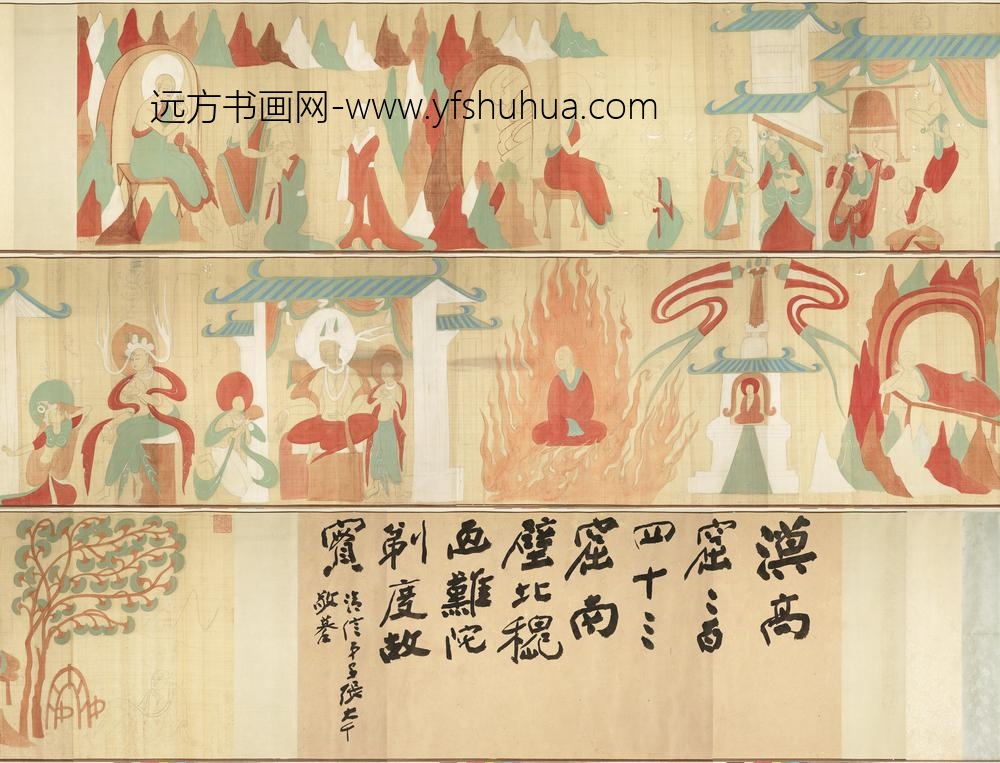 远方书画网-www.yfshuhua.com
漠高
窟二百
四十三
窟南
壁北魏
画難陀
剃度故
實
清信弟子張大千
敬摹